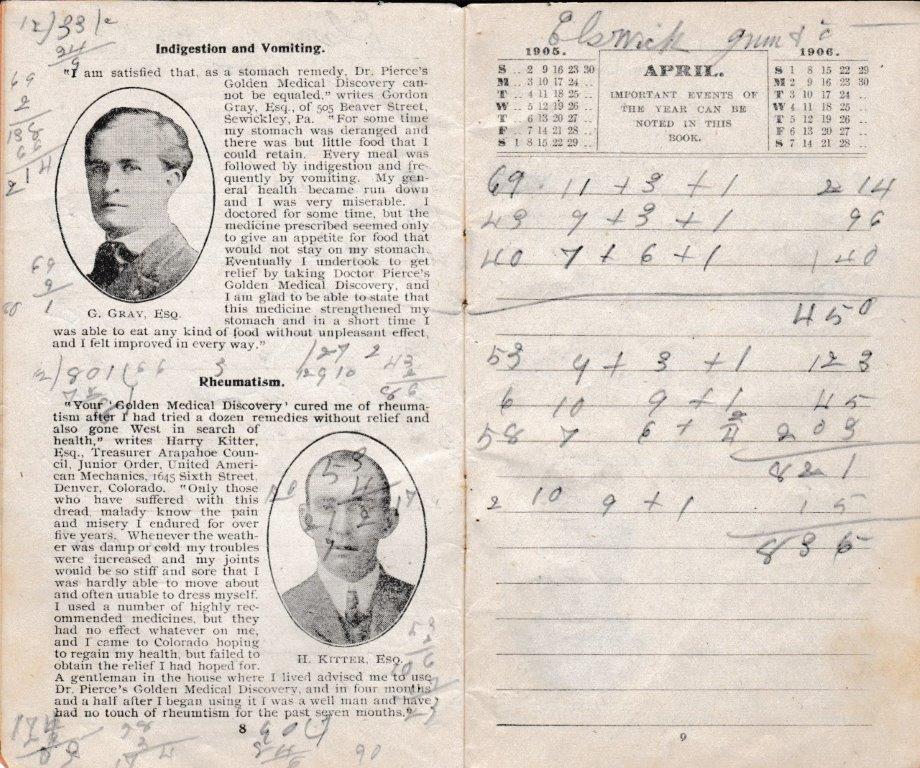 Indigestion and Vomiting.
"I am satisfied that, as a stomach remedy, Dr. Pierce's
Golden Medical Discovery can-
not be equaled," writes Gordon
Gray, Esq., of 505 Beaver Street,
Sewickley, Pa. "For some time
my stomach was deranged and
there was but little food that I
could retain. Every meal was
followed by indigestion and fre-
quently by vomiting. My gen-
eral health became run down
and I was very miserable. I
doctored for some time, but the
medicine prescribed seemed only
to give an appetite for food that
would not stay on my stomach.
Eventually I undertook to get
relief by taking Doctor Pierce's
Golden Medical Discovery, and
I am glad to be able to state that
this medicine strengthened my
stomach and in a short time I
was able to eat any kind of food without unpleasant effect,
and I felt improved in every way."
G. GRAY, ESQ.
Rheumatism.
"Your 'Golden Medical Discovery' cured me of rheuma-
tism after I had tried a dozen remedies without relief and
also gone West in search of
health," writes Harry Kitter,
Esq., Treasurer Arapahoe Coun-
cil, Junior Order, United Ameri-
can Mechanics, 1645 Sixth Street,
Denver, Colorado. "Only those
who have suffered with this
dread, malady know the pain
and misery I endured for over
five years. Whenever the weath-
er was damp or cold my troubles
were increased and my joints
would be so stiff and sore that I
was hardly able to move about
and often unable to dress myself.
I used a number of highly rec-
ommended medicines, but they
had no effect whatever on me,
and I came to Colorado hoping
to regain my health, but failed to
obtain the relief I had hoped for.
A gentleman in the house where I lived advised me to use
Dr. Pierce's Golden Medical Discovery, and in four months
and a half after I began using it I was a well man and have
had no touch of rheumtism for the past seven months."
H. KITTER, ESQ.
8
Elswick
1905.
S .. 2 9 16 23 30
M .. 3 10 17 24 ..
T .. 4 11 18 25 ..
W .. 5 12 19 26 ..
T .. 6 13 20 27 ..
F .. 7 14 21 28 ..
S 1 8 15 22 29 ..
APRIL.
IMPORTANT EVENTS OF
THE YEAR CAN BE
NOTED IN THIS
BOOK.
1906.
S 1 8 15 22 29
M 2 9 16 23 30
T 3 10 17 24 ..
W 4 11 18 25 ..
T 5 12 19 26 ..
F 6 13 20 27 ..
S 7 14 21 28 ..
69 11 + 3 + 1 214
43 9 + 3 + 1 96
40 7 + 6 + 1 140
450
53 9 + 3 + 1 123
6 10 9 + 1 45
58 7 6 + 203
821
2 10 9 + 1 15
836
9